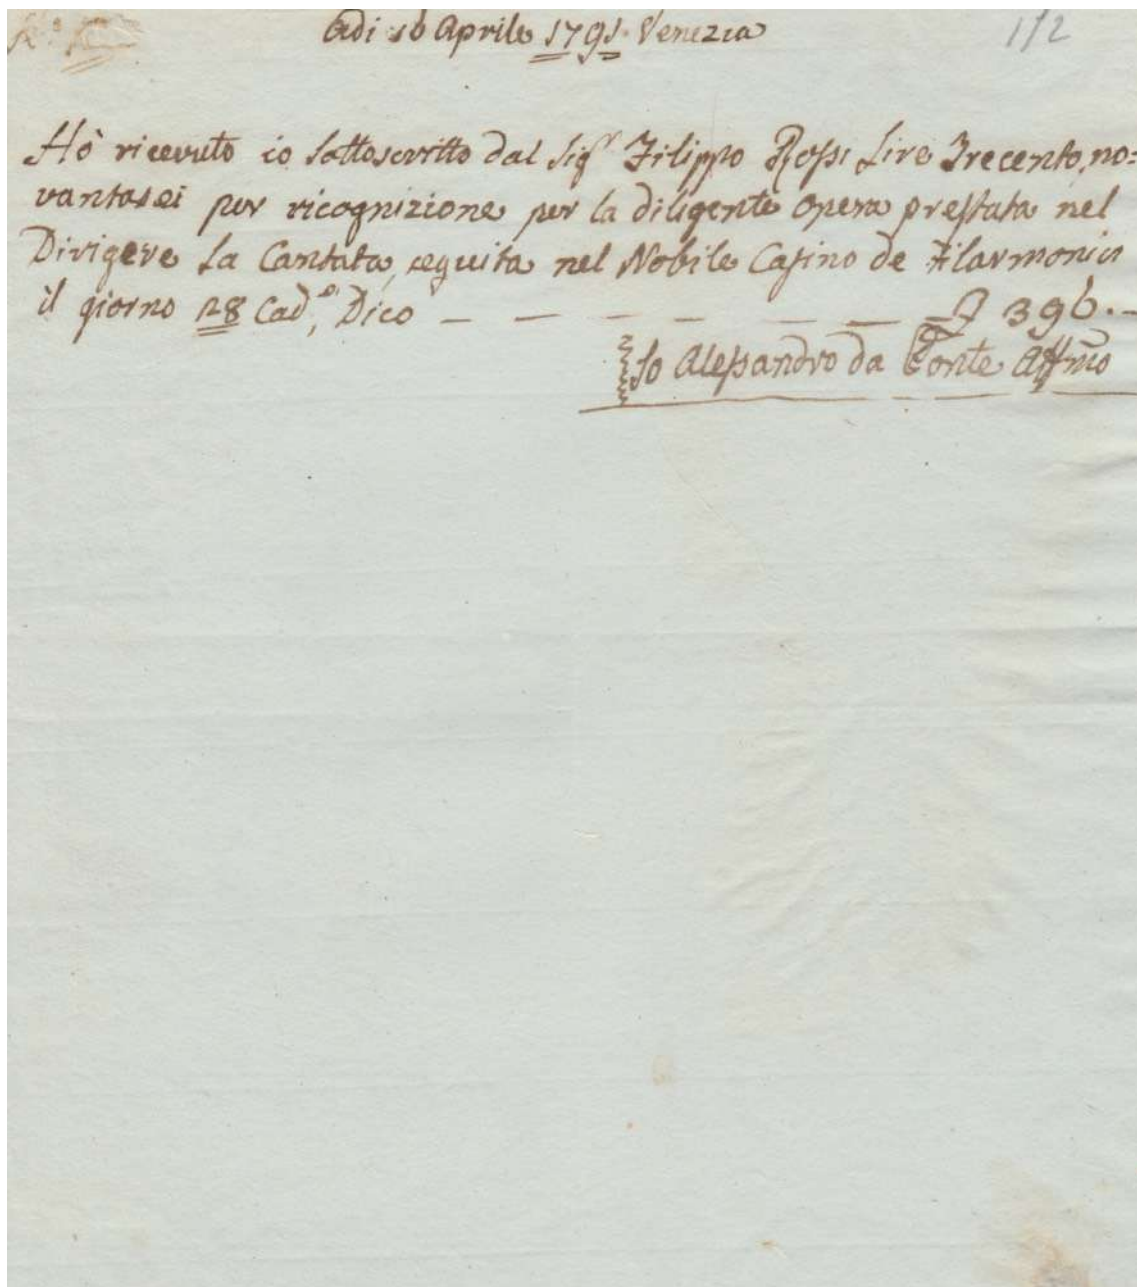 Adi 16 Aprile 1791. Venezia
112
Hò ricevuto io sottoscritto dal Sigʳ Filippo Rossi Lire Trecento, no=
vantasei per ricognizione per la diligente opera prestata nel
Dirigere la Cantata, seguita nel Nobile Casino de Filarmonici
il giorno 28 Cadᵒ, Dico — — — — — — 396.—
Io Alessandro da Ponte Affmo